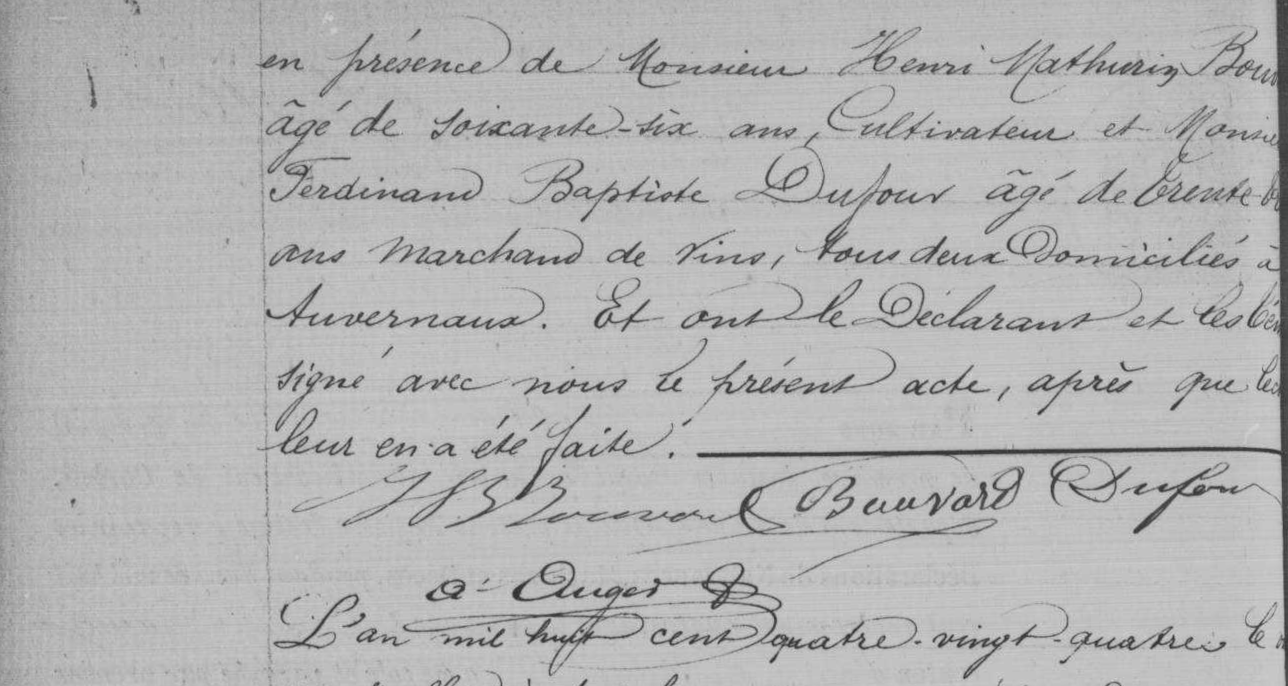 en présence de Monsieur Henri Mathurin Bouv
âgé de soixante-six ans, Cultivateur et Monsie
Ferdinand Baptiste Dufour âgé de trente-
ans marchand de vins, tous deux Domiciliés à
Auvernaux. Et ont le Déclarant et les tém
signé avec nous le présent acte, après que lec
leur en a été faite.
Bouvard Bouvard Dufour
a. Auger
L'an mil huit cent quatre-vingt-quatre le